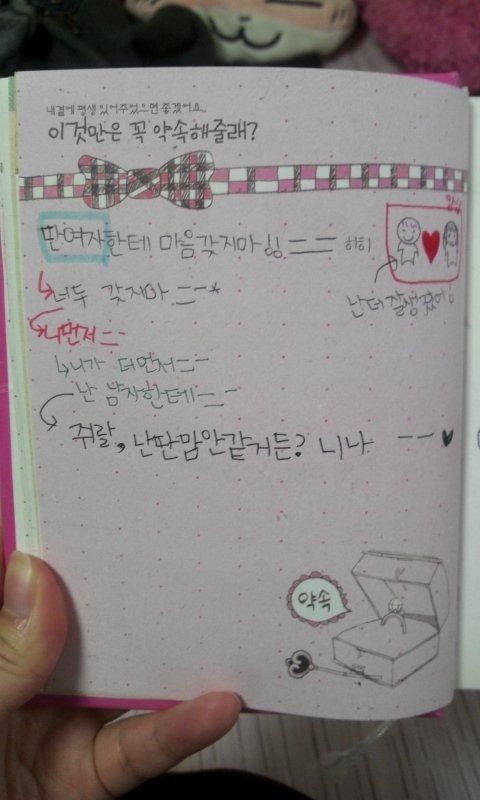 내곁에 평생 있어주었으면 좋겠어요
이것만은 꼭 약속해줄래?
딴여자한테 마음갖지마!! == 히히
난 더 잘생겼어!
너두 갖지마 --*
니먼저 --
니가 더먼저 --
난 남자한테 --
쥐랄, 난딴맘안갖거든? 니나 -- ♥
약속